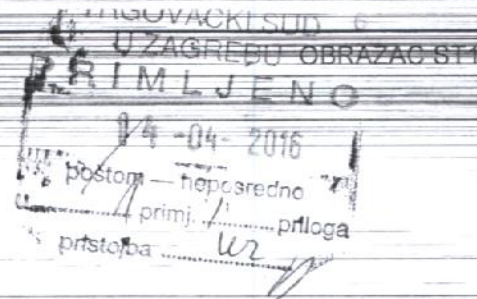 TRGOVAČKI SUD 6
U ZAGREBU OBRAZAC ST1
PRIMLJENO
14 -04- 2016
poštom — neposredno
1 primj. 1 priloga
pristojba